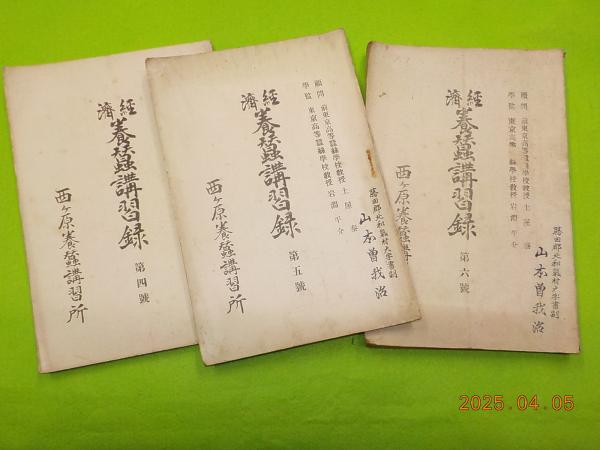 經濟
養蠶講習録
第四號
西ヶ原養蠶講習所
顧問 前東京高等蠶絲學校教授 土屋泰
學監 東京高等蠶絲學校教授 岩淵平介
經濟
養蠶講習録
第五號
西ヶ原養蠶講習所
山本曽我治
顧問 前東京高等蠶絲學校教授 土屋泰
學監 東京高等蠶絲學校教授 岩淵平介
經濟
養蠶講習録
第六號
西ヶ原養蠶講
勝田郡北和氣村大字書副
山本曽我治
2025.04.05